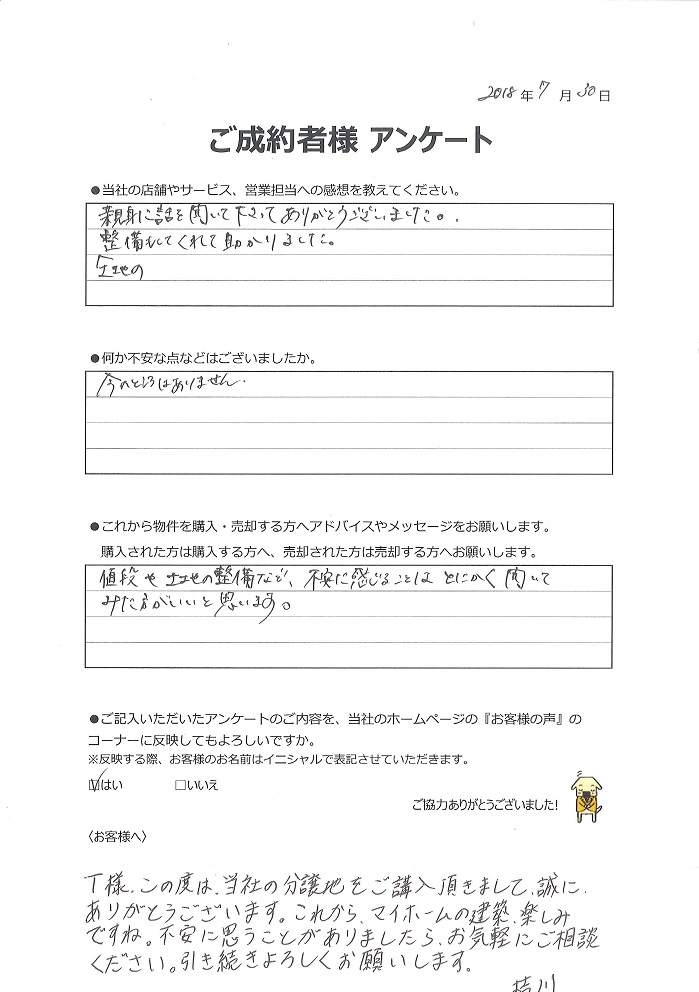 2018年7月30日
ご成約者様 アンケート
●当社の店舗やサービス、営業担当への感想を教えてください。
親身に話を聞いて下さってありがとうございました。
整備もしてくれて助かりました。
土地の
●何か不安な点などはございましたか。
今のところはありません。
●これから物件を購入・売却する方へアドバイスやメッセージをお願いします。
購入された方は購入する方へ、売却された方は売却する方へお願いします。
値段や土地の整備など、不安に感じることはとにかく聞いて
みた方がいいと思います。
●ご記入いただいたアンケートのご内容を、当社のホームページの『お客様の声』の
コーナーに反映してもよろしいですか。
※反映する際、お客様のお名前はイニシャルで表記させていただきます。
☑はい □いいえ
ご協力ありがとうございました!
〈お客様へ〉
T様、この度は、当社の分譲地をご購入頂きまして、誠に
ありがとうございます。これから、マイホームの建築、楽しみ
ですね。不安に思うことがありましたら、お気軽にご相談
ください。引き続きよろしくお願いします。